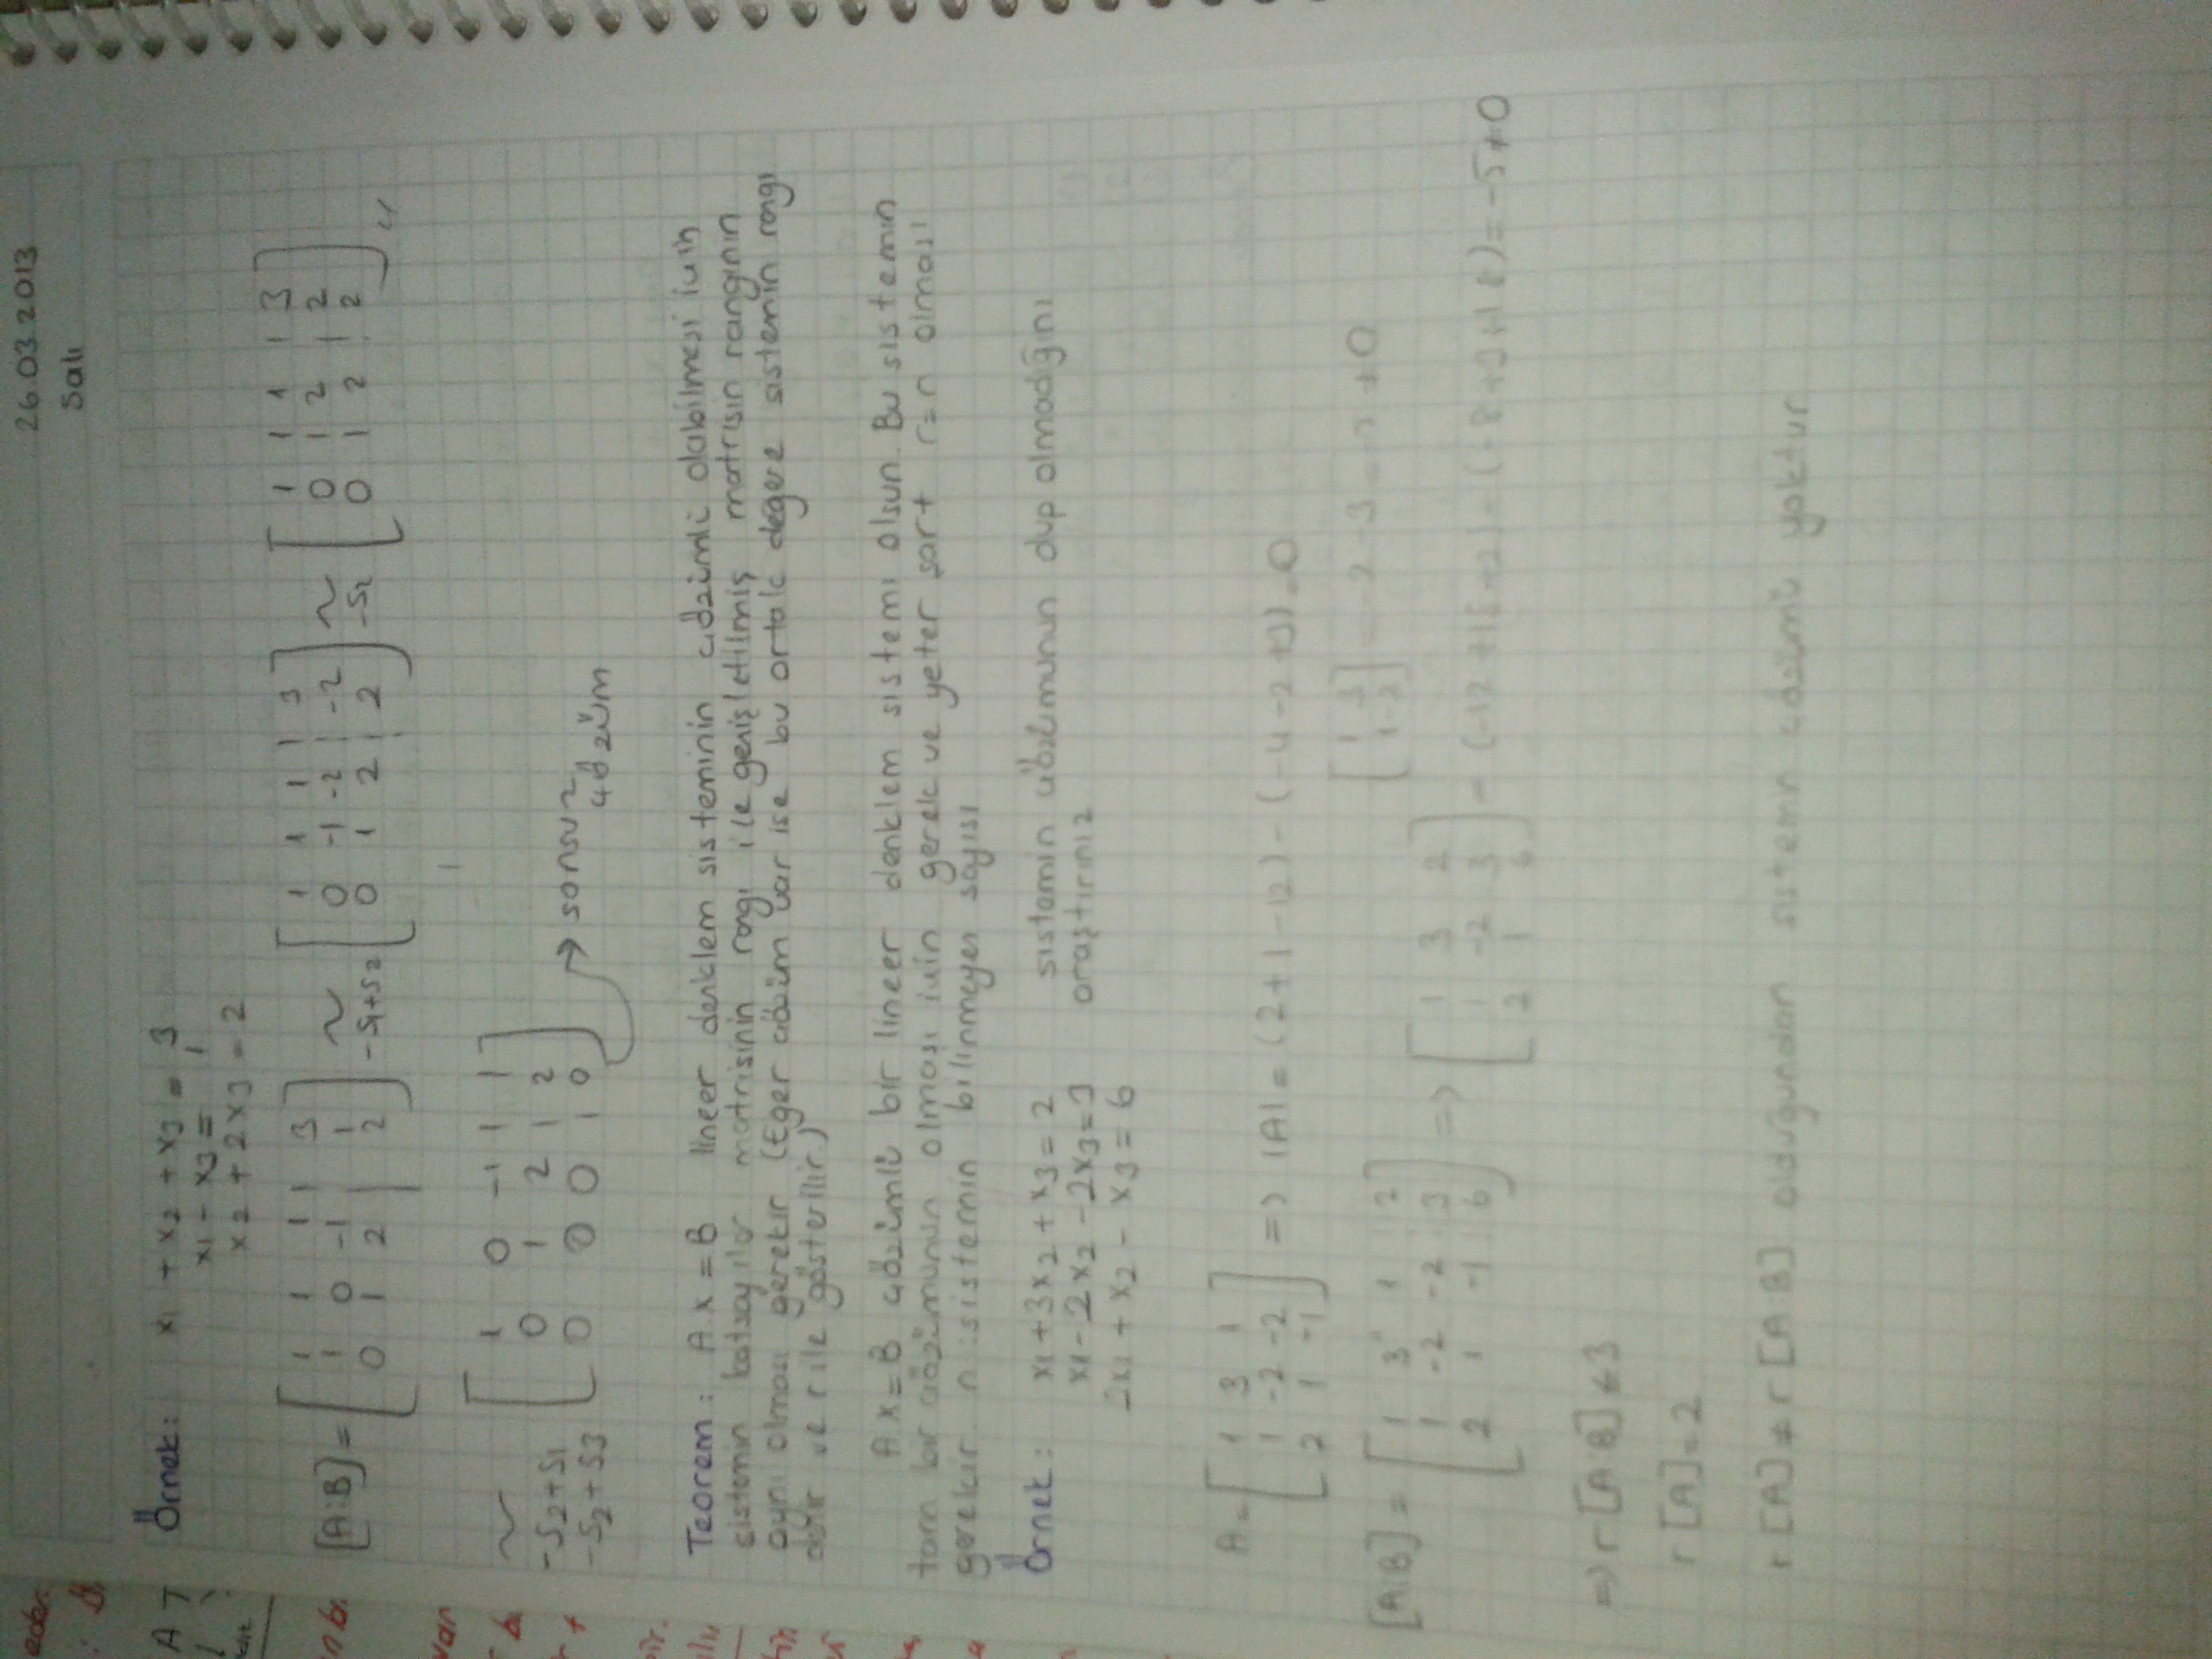 26.03.2013
Salı
Örnek: x1 + x2 + x3 = 3
x1 - x3 = 1
x2 + 2x3 = 2
[A:B] = [ 1 1 1 | 3 ] ~ [ 1 1 1 | 3 ] ~ [ 1 1 1 | 3 ]
1 0 -1 | 1   0 -1 -2 | -2   0 1 2 | 2
0 1 2 | 2   -S1+S2   0 1 2 | 2   -S2   0 1 2 | 2
~ [ 1 0 -1 | 1 ]
-S2+S1   0 1 2 | 2
-S2+S3   0 0 0 | 0   → sonsuz
çözüm
Teorem: A.X = B lineer denklem sisteminin çözümlü olabilmesi için
sistemin katsayılar matrisinin rangı ile genişletilmiş matrisin rangının
aynı olması gerekir (Eger çözüm var ise bu ortak değere sistemin rangı
denir ve r ile gösterilir.)
AX = B çözümlü bir lineer denklem sistemi olsun. Bu sistemin
tam bir çözümünün olması için gerek ve yeter şart r=n olması
gerekir n:sistemin bilinmeyen sayısı
Örnek: x1 + 3x2 + x3 = 2 sistemin çözümünün olup olmadığını
x1 - 2x2 - 2x3 = 3 araştırınız
2x1 + x2 - x3 = 6
A = [ 1 3 1 ]
1 -2 -2 => |A| = (2+1-12) - (-4-2+3) = 0
2 1 -1
[ 1 3 ] = -2-3 = -5 ≠ 0
1 -2
[A:B] = [ 1 3 1 2 ]
1 -2 -2 3 => [ 1 3 2 ]
2 1 -1 6   1 -2 3 = (-12+18+2) - (-8+3+18) = -5 ≠ 0
2 1 6
=> r[A:B] = 3
r[A] = 2
r[A] ≠ r[A:B] olduğundan sistemin çözümü yoktur